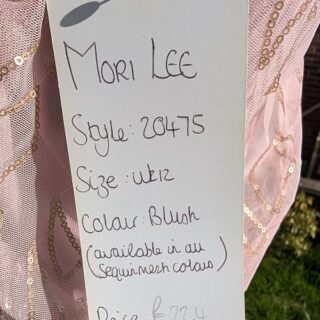 MORI LEE
Style: 20475
Size: UK12
Colour: Blush
(available in all
Sequin mesh colours)
Price: £224